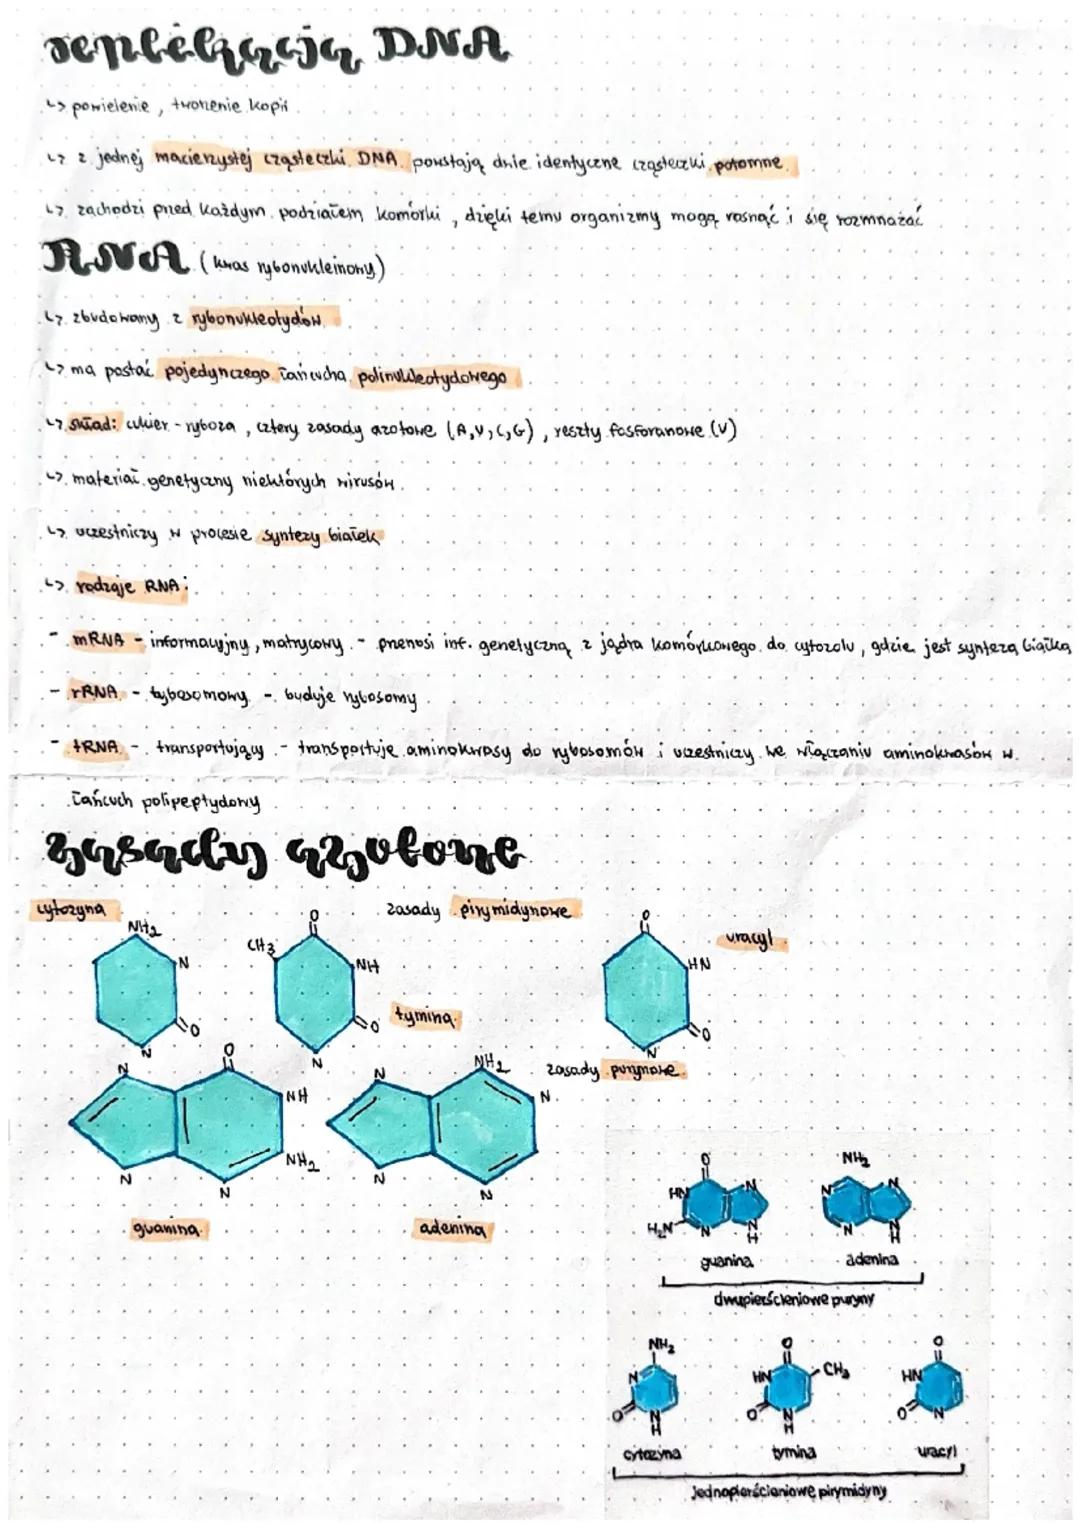 replikacja DNA
↳ powielenie, tworzenie kopii
↳ z jednej macierzystej cząsteczki DNA powstają dwie identyczne cząsteczki potomne
↳ zachodzi przed każdym podziałem komórki, dzięki temu organizmy mogą rosnąć i się rozmnażać
RNA (kwas rybonukleinowy)
↳ zbudowany z rybonukleotydów
↳ ma postać pojedynczego łańcucha polinukleotydowego
↳ skład: cukier - ryboza, cztery zasady azotowe (A,U,C,G), reszty fosforanowe (V)
↳ materiał genetyczny niektórych wirusów
↳ uczestniczy w procesie syntezy białek
↳ rodzaje RNA:
- mRNA - informacyjny, matrycowy - przenosi inf. genetyczną z jądra komórkowego do cytozolu, gdzie jest synteza białka
- rRNA - rybosomowy - buduje rybosomy
- tRNA - transportujący - transportuje aminokwasy do rybosomów i uczestniczy we włączaniu aminokwasów w
łańcuch polipeptydowy
zasady azotowe
cytozyna
zasady pirymidynowe
uracyl
NH2
N
O
N
O
CH3
NH
O
N
tymina
O
HN
O
N
zasady purynowe
N
O
NH
NH2
N
N
guanina
N
NH2
N
N
N
adenina
O
HN
H2N
N
N
N
H
guanina
NH2
N
N
N
N
H
adenina
dwupierścieniowe puryny
NH2
N
O
N
H
cytozyna
O
HN
CH3
O
N
H
tymina
O
HN
O
N
uracyl
jednopierścieniowe pirymidyny